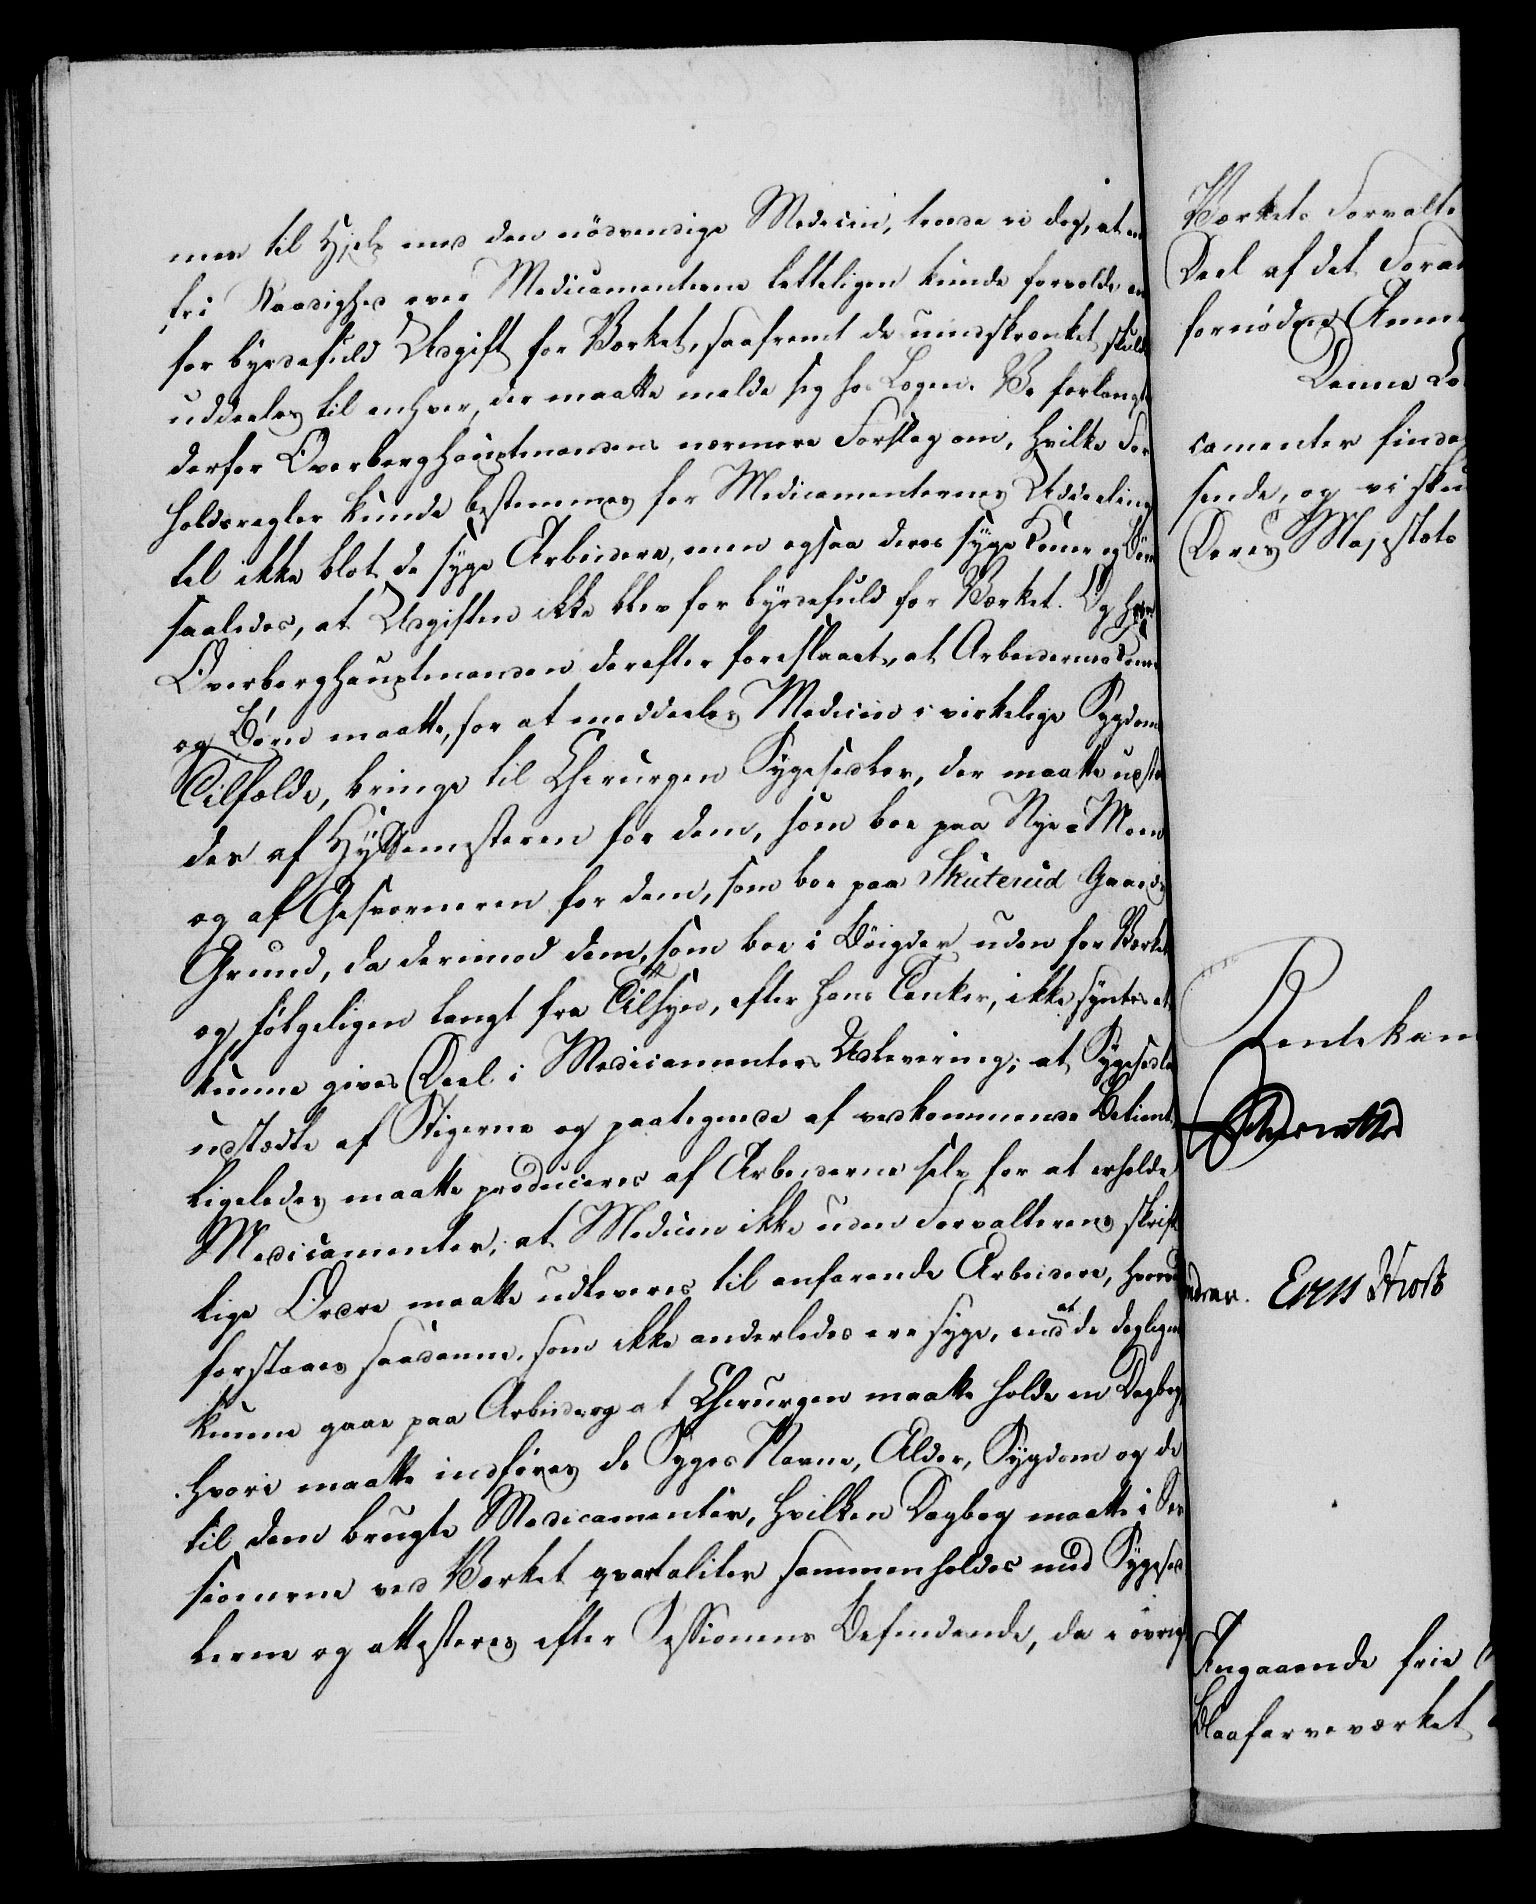 men til Hjelp med den nödvendige Medicin, troede vi dog, at en
fri Raadighed over Medicamenterne letteligen kunde forvolde en
for byrdefuld Udgift for Værket, saafremt de uindskrænket skulde
uddeeles til enhver, der maatte melde sig hos Lægen. Vi forlangte
derfor Overberghauptmandens nærmere Forslag om, hvilke For
holdsregler kunde bestemmes for Medicamenternes Uddeeling
til ikke blot de syge Arbeidere, men ogsaa deres syge Koner og Börn
saaledes, at Udgiften ikke blev for byrdefuld for Værket. Og har
Overberghauptmanden derefter foreslaaet, at Arbeidernes Koner
og Börn maatte, for at meddeeles Medicin i virkelige Sygdoms
Tilfælde, bringe til Chirurgen Sygesedler, der maatte udste
des af Hyttemesteren for dem, som boe paa Nye-Moen
og af Gesvorneren for dem, som boe paa Skuterud Gaards
Grund, da derimod dem, som boe i Böigder uden for Værket
og fölgeligen langt fra Tilsyn, efter hans Tanker, ikke syntes at
kunne gives Deel i Medicamenters Udlevering; at Sygesedler
udstædte af Stigerne og paategnede af vedkommende Betient
ligeledes maatte produceres af Arbeiderne selv for at erholde
Medicamenter; at Medicin ikke uden Forvalterens skrift
lige Ordre maatte udleveres til anfarende Arbeidere, hvorved
forstaaes saadanne, som ikke anderledes ere syge, end at de dagligen
kunne gaae paa Arbeide; og at Chirurgen maatte holde en Dagbog,
hvori maatte indföres de Syges Navne, Alder, Sygdom og de
til dem brugte Medicamenter, hvilken Dagbog maatte i Ses
sionerne ved Værket qvartaliter sammenholdes med Sygesed
lerne og attesteres efter Sessionens Befindende, da i övrigt
Værkets Forvalte
Deel af det Foran
fornödne Anm
Denne
camenter finde
sende, og vi sku
Deres Majestæts
Rentekam
Angaaende frie
Blaafarveværket